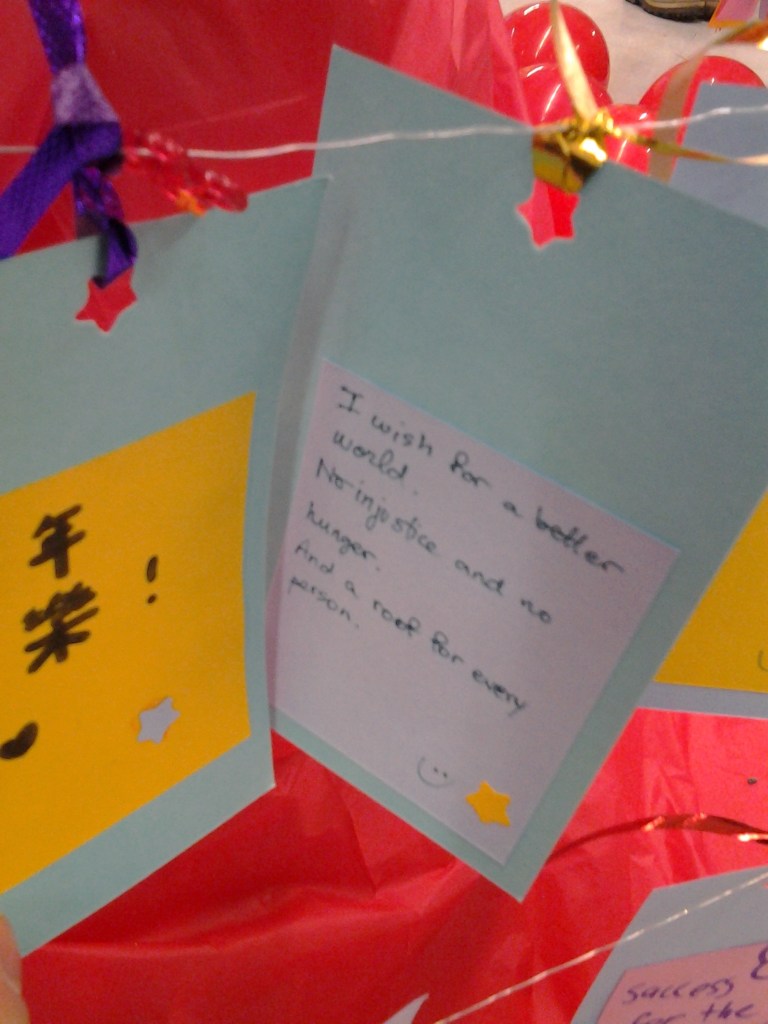 年
I wish for a better
world.
No injustice and no
hunger.
And a roof for every
person.
success
for the